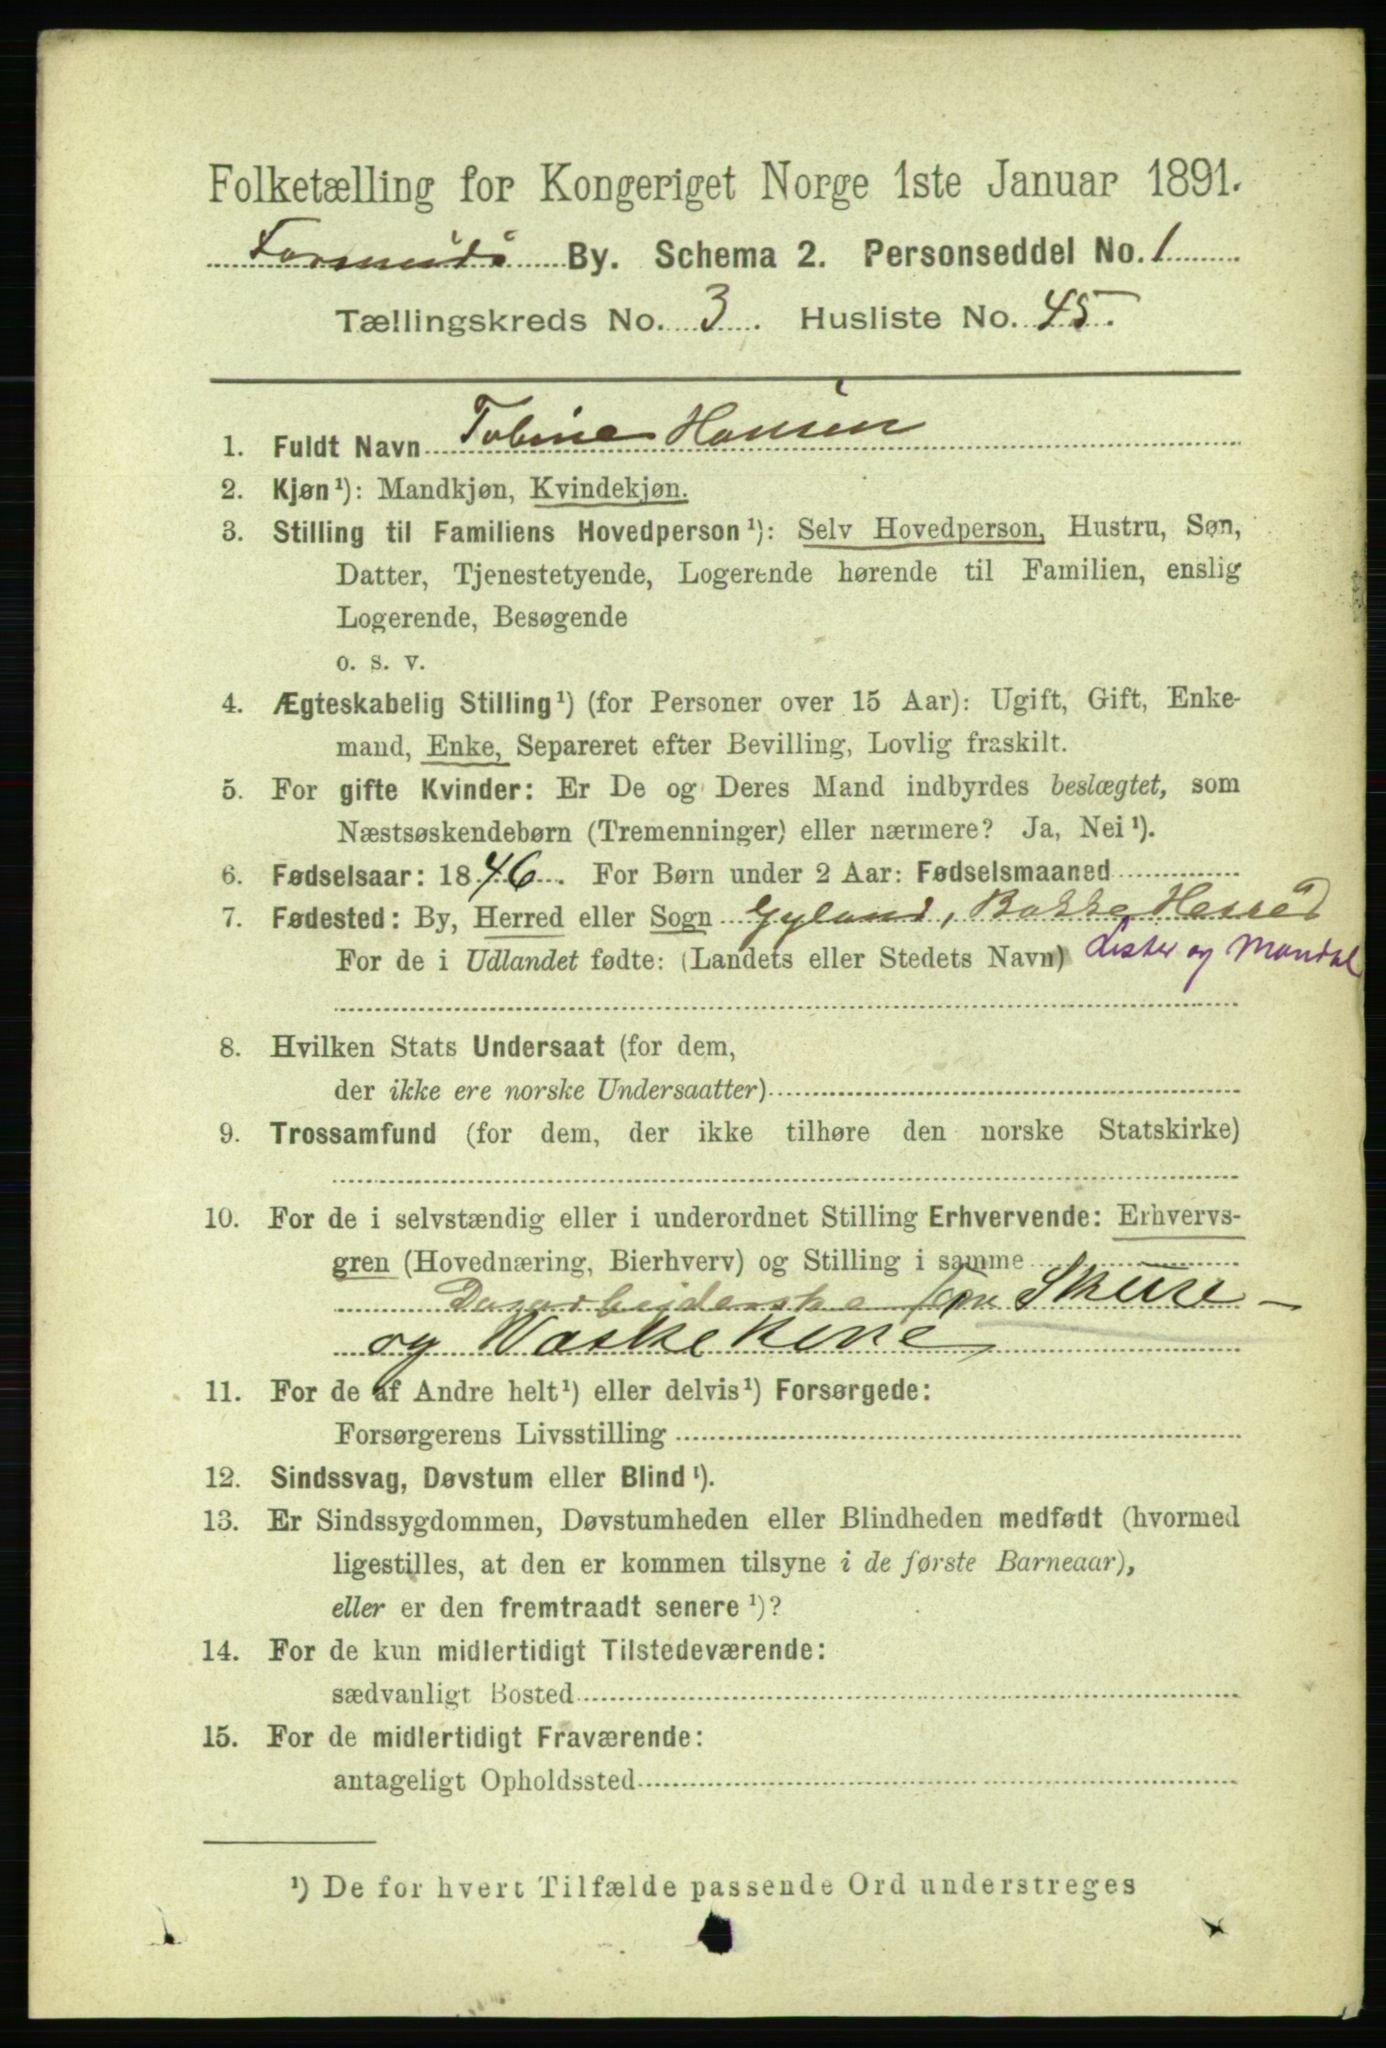 Folketælling for Kongeriget Norge 1ste Januar 1891.
Farsunds By. Schema 2. Personseddel No. 1
Tællingskreds No. 3. Husliste No. 45.
1. Fuldt Navn Tobine Hansen
2. Kjøn¹): Mandkjøn, Kvindekjøn.
3. Stilling til Familiens Hovedperson¹): Selv Hovedperson, Hustru, Søn,
Datter, Tjenestetyende, Logerende hørende til Familien, enslig
Logerende, Besøgende
o. s. v.
4. Ægteskabelig Stilling¹) (for Personer over 15 Aar): Ugift, Gift, Enke-
mand, Enke, Separeret efter Bevilling, Lovlig fraskilt.
5. For gifte Kvinder: Er De og Deres Mand indbyrdes beslægtet, som
Næstsøskendebørn (Tremenninger) eller nærmere? Ja, Nei¹).
6. Fødselsaar: 1846. For Børn under 2 Aar: Fødselsmaaned
7. Fødested: By, Herred eller Sogn Gyland, Bakke Herred
For de i Udlandet fødte: (Landets eller Stedets Navn) Lister og Mandal
8. Hvilken Stats Undersaat (for dem,
der ikke ere norske Undersaatter)
9. Trossamfund (for dem, der ikke tilhøre den norske Statskirke)
10. For de i selvstændig eller i underordnet Stilling Erhvervende: Erhvervs-
gren (Hovednæring, Bierhverv) og Stilling i samme
Dagarbejderske Skure-
og Vaskekone
11. For de af Andre helt¹) eller delvis¹) Forsørgede:
Forsørgerens Livsstilling
12. Sindssvag, Døvstum eller Blind¹).
13. Er Sindssygdommen, Døvstumheden eller Blindheden medfødt (hvormed
ligestilles, at den er kommen tilsyne i de første Barneaar),
eller er den fremtraadt senere¹)?
14. For de kun midlertidigt Tilstedeværende:
sædvanligt Bosted
15. For de midlertidigt Fraværende:
antageligt Opholdssted
¹) De for hvert Tilfælde passende Ord understreges